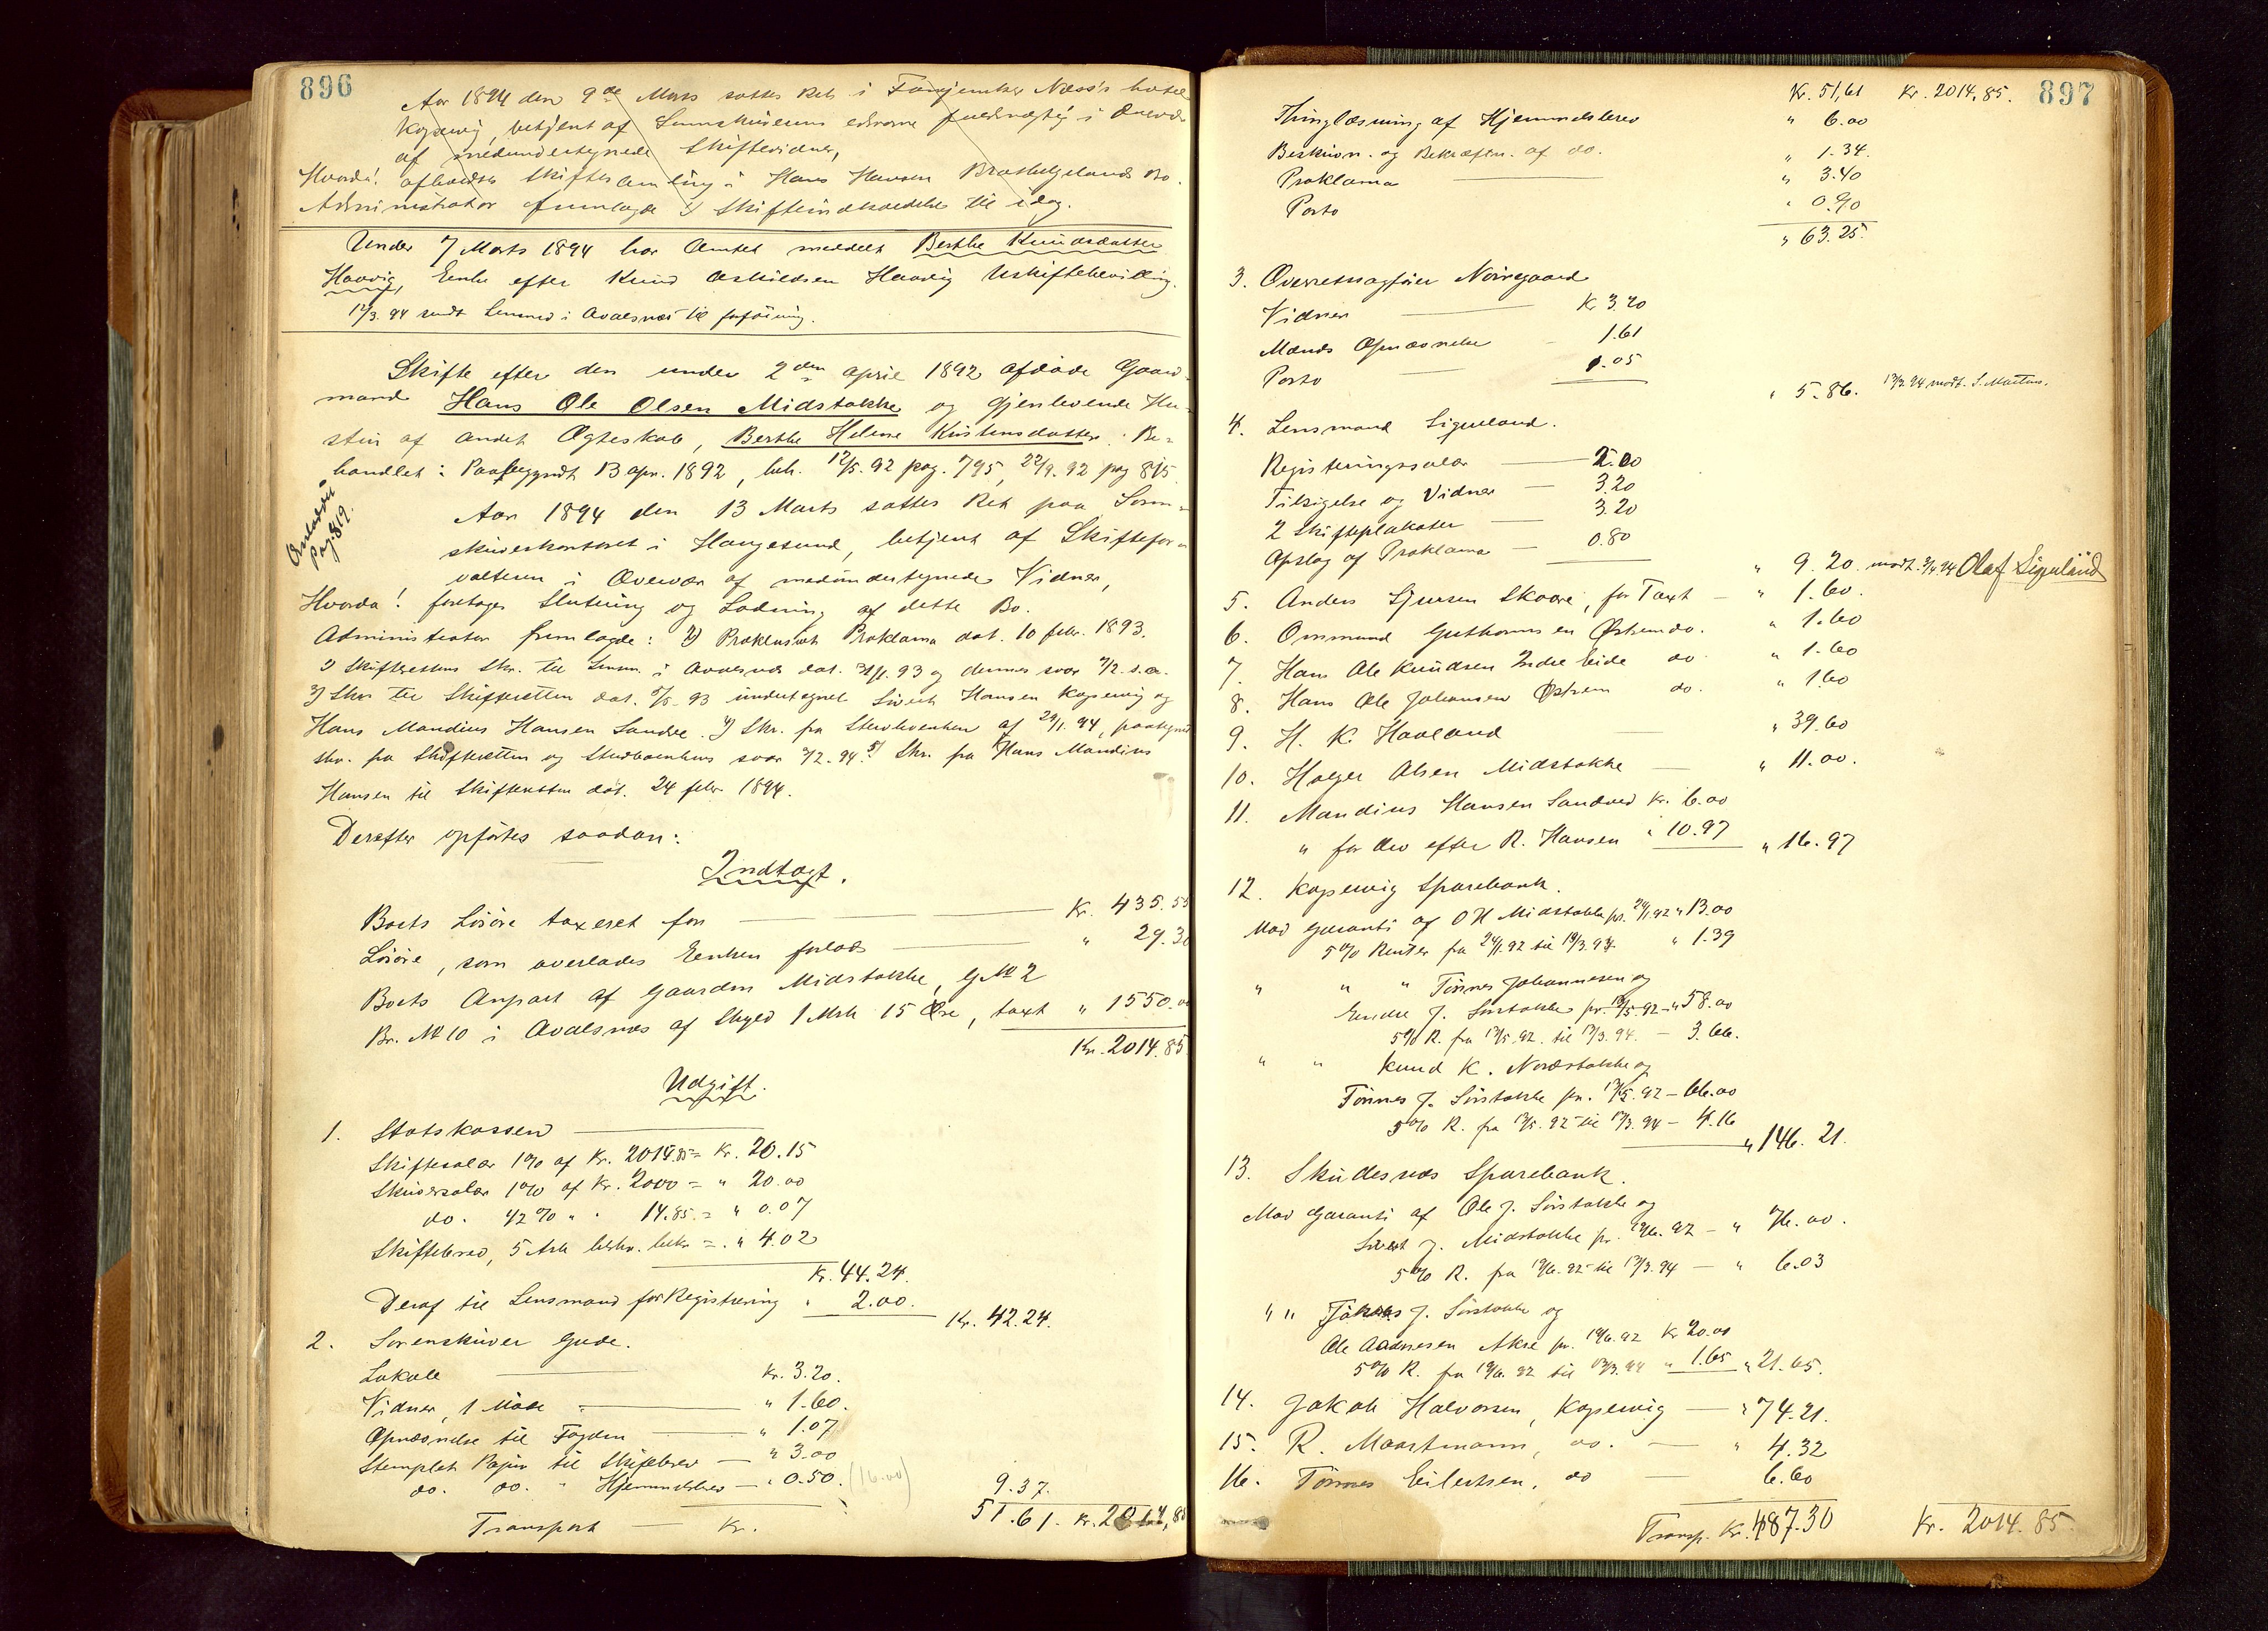 896
Aar 1894 den 9de Marts sattes Ret i Næss's hotel
Kopervig, betjent af Sorenskriverens edsvorne fuldmægtig i Overvær
af medundertegnede Skiftevidner,
Hvorda! afholdtes Skiftesamling i Hans Hansen Bo.
Administrator fremlagde 1) Skifteindkaldelse til idag.
Under 7 Marts 1894 har Amtet meddelt Berthe Knudsdatter
Haavig, Enke efter Knud Haavig Uskiftebevilling.
12/3. 94 sendt Lensmd i Avalsnæs til forføining.
Skifte efter den under 2den April 1892 afdøde Gaard-
mand Hans Ole Olsen Midstokke og gjenlevende Hu-
stru af andet Ægteskab, Berthe Helene Kristensdatter. Be-
handlet: Paabegyndt 13 apr. 1892, beh. 12/5. 92 pag. 795, 22/9. 92 pag 815
Pag. 819.
Aar 1894 den 13 Marts sattes Ret paa Soren-
skriverkontoret i Haugesund, betjent af Skiftefor-
valteren i Overvær af medundertegnede Vidner,
Hvorda! foretages Slutning og Lodning af dette Bo.
Administrator fremlagde: 1) Proklama dat. 10 febr. 1893.
2 Skifterettens Skr. til Lensm. i Avalsnæs dat. 31/1. 93 og dennes svar 7/2. s.a.
3) Skr til Skifteretten dat. 93 undertegnet Sivert Hansen Kopervig og
Hans Mandius Hansen Sandve. 4) Skr. fra af 29/1. 94, paategnet
skr. fra Skifteretten og svar 94. 5) Skr. fra Hans Mandius
Hansen til Skifteretten dat. 24 febr 1894.
Derefter opførtes saadan:
Indtægt.
Boets Løsøre taxeret for Kr. 435.55
Løsøre, som overlades Enken forlods " 29.30
Boets Anpart af Gaarden Midstokke, G. No 2
Br. No 10 i Avalsnæs af Skyld 1 Mrk 15 Øre, taxt " 1550.00
Kr. 2014.85
Udgift.
1. Statskassen
Skiftesalær 1% af Kr. 2014.85 = Kr. 20.15
Skriversalær 1% af Kr. 2000 = " 20.00
do. 1/2 % " " 14.85 = " 0.07
Skiftebrev, 5 Ark beskr. bekr = " 4.02
Kr. 44.24.
Deraf til Lensmand for Registrering " 2.00. Kr. 42.24.
2. Sorenskriver Gude.
Lokale Kr. 3.20.
Vidner, 1 Møde " 1.60.
Opnævnelse til Fogden " 1.07
Stemplet Papir til Skiftebrev — " 3.00
do. do. " Hjemmelsbrev — " 0.50. (16.00) 9.37.
Transport — Kr. 51.61. Kr. 2014,85
Kr. 51,61 Kr. 2014,85. 897
Thinglæsning af Hjemmelsbrev " 6.00
Beskrivn. og Bekræftn. af do. " 1.34.
Proklama " 3.40
Porto " 0.90
" 63.25.
3. Overretssagfører Nørregaard
Vidner Kr 3.20
Mænds Opnævnelse 1.61
Porto 1.05
" 5.86. 13/3. 94 modt. S. Martens.
4. Lensmand Siqueland.
Registreringssalær 2.00
Tilsigelse og Vidner — 3.20
2 Skifteplakater — 3.20
Opslag af Proklama — 0.80
" 9.20. modt. 94 Olaf Siqueland
5. Anders Sjursen Skaare, for Taxt — " 1.60.
6. Ommund Guthormsen Østrem do. " 1.60
7. Hans Ole Knudsen Indre Eide do " 1.60
8. Hans Ole Johansen Østrem do. " 1.60
9. H. K. Haaland " 39.60
10. Holger Olsen Midstokke " 11.00.
11. Mandius Hansen Sandved Kr. 6.00
" for Arv efter R. Hansen " 10.97 " 16.97
12. Kopervig Sparebank.
Mod Garanti af O H Midstokke pr. 24/1 92 " 13.00
5% Renter fra 24/1. 92 til 13/3. 94. " 1.39
" " " Tønnes Johannesen og
Endre J. Sørstokke pr. 12/5. 92 " 58.00
5% R. fra 12/5. 92. til 13/3. 94. — 3.66.
" " Knud K. Nordstokke og
Tønnes J. Sørstokke pr. 92 — 66.00
5% R. fra 92 til 13/3 94 — 4.16
" 146.21.
13. Skudesnæs Sparebank.
Mod Garanti af Ole J. Sørstokke og
Sivert J. Midstokke pr. 92 — " 76.00.
5% R. fra 92 til 13/3. 94 — " 6.03
" " J. Sørstokke og
Ole Aadnesen Akse pr. 92 Kr 20.00
5% R. fra 92 til 13/3. 94 " 1.65 " 21.65.
14. Jakob Halvorsen, Kopervig — " 74.21.
15. R. Maartmann, do. — " 4.32
16. Tønnes Eilertsen, do — 6.60
Transp. Kr. 487.30 Kr. 2014.85